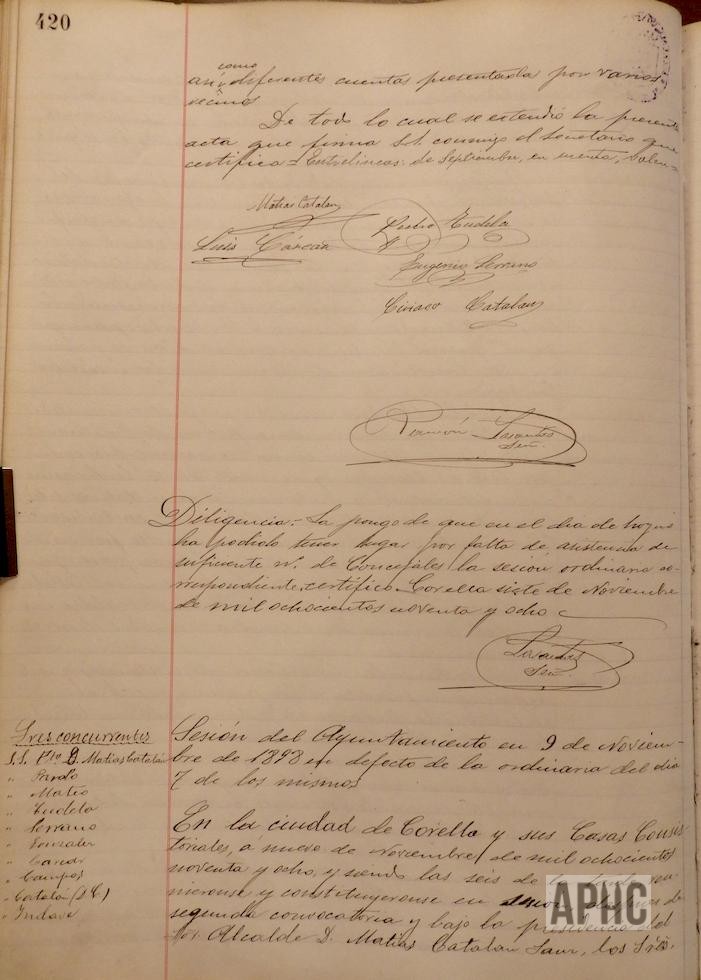 420
como
así diferentes cuentas presentada por varios
vecinos
De todo lo cual se extendió la presente
acta que firma S.S. conmigo el Secretario que
certifica = Entrelineas: de Septiembre, en cuenta, valen =
Matias Catalan
Luis Cárcar
Pedro Tudela
Eugenio Serrano
Ciriaco Catalan
Ramón Lasantas
Srio.
Diligencia: La pongo de que en el dia de hoy no
ha podido tener lugar por falta de asistencia de
suficiente nº. de Concejales la sesion ordinaria co-
rrespondiente, certifico. Corella siete de Noviembre
de mil ochocientos noventa y ocho
Lasantas
Srio.
Sres concurrentes
S.S. Pte D. Matias Catalán
" Pardo
" Mateo
" Tudela
" Serrano
" Gonzalez
" Carcar
" Campos
" Catalán (D.C.)
"
Sesión del Ayuntamiento en 9 de Noviem-
bre de 1898 en defecto de la ordinaria del dia
7 de los mismos
En la ciudad de Corella y sus Casas Consis-
toriales, a nueve de Noviembre, de mil ochocientos
noventa y ocho, y siendo las seis de reu-
nieronse y constituyeronse en sesion de
segunda convocatoria y bajo la presidencia del
Sr. Alcalde D. Matias Catalan Sanz, los Sres.
APHC